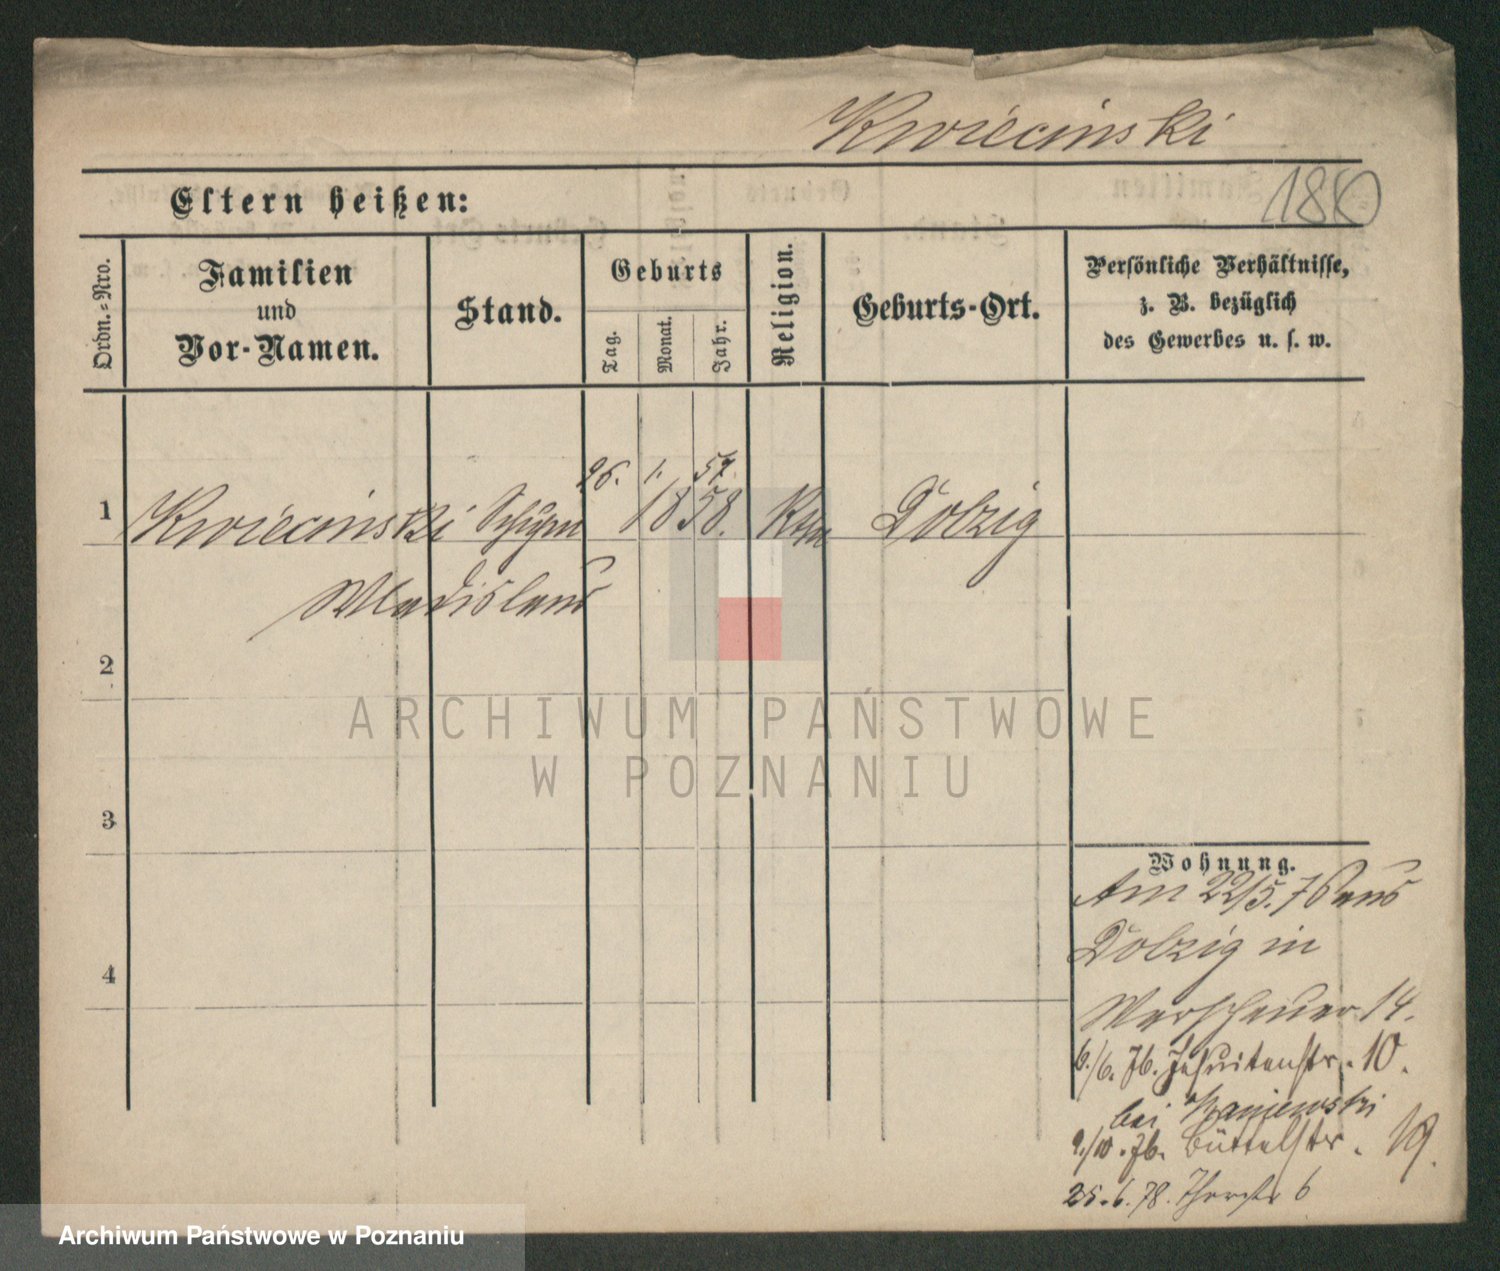 Kwiecinski
180
Eltern heißen:
Ordn.-Nro.
Familien
und
Vor-Namen.
Stand.
Geburts
Tag.
Monat.
Jahr.
Religion.
Geburts-Ort.
Persönliche Verhältnisse,
z. B. bezüglich
des Gewerbes u. s. w.
26. 1. 57.
1 Kwiecinski 1858. Dolzig
Wladislaus
2
3
4
ARCHIWUM PAŃSTWOWE
W POZNANIU
Wohnung.
Am 22/5. 76 aus
Dolzig in
14.
6./6. 76. Jesuitenstr. 10.
bei
9./10. 76. Büttelstr. 19.
25. 6. 78. 6
Archiwum Państwowe w Poznaniu